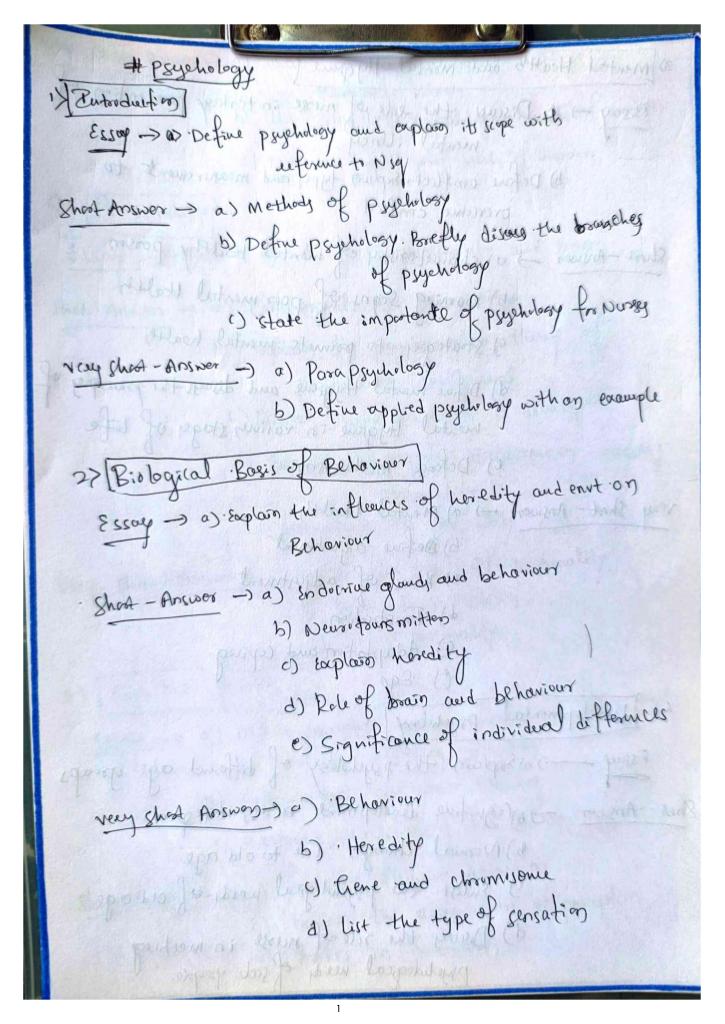 # Psychology
1) Introduction
Essay → a) Define psychology and explain its scope with
reference to Nsg
Short Answer → a) Methods of psychology
b) Define psychology. Briefly discuss the branches
of psychology
c) state the importante of psychology for Nurses
very short - Answer → a) Para psychology
b) Define applied psychology with an example
2) Biological Basis of Behaviour
Essay → a) Explain the influences of heredity and envt on
Behaviour
Short - Answer → a) Endocrine glands and behaviour
b) Neurotransmitters
c) explain heredity
d) Role of brain and behaviour
e) Significance of individual differences
very short Answers → a) Behaviour
b) Heredity
c) Gene and chromosome
d) List the type of sensation
1